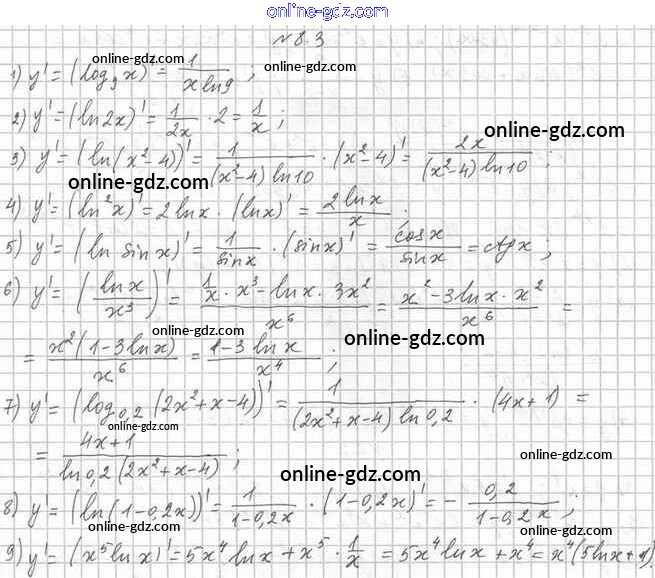 online-gdz.com
№8.3
online-gdz.com
1) y' = (log₉x)' = 1/(x ln9) ;
2) y' = (ln2x)' = 1/(2x) · 2 = 1/x ;
online-gdz.com
3) y' = (ln(x²-4))' = 1/((x²-4) ln10) · (x²-4)' = 2x/((x²-4) ln10) ;
online-gdz.com
4) y' = (ln²x)' = 2 lnx · (lnx)' = (2 lnx)/x .
online-gdz.com
5) y' = (ln sinx)' = 1/sinx · (sinx)' = cosx/sinx = ctgx ;
online-gdz.com
6) y' = (lnx/x³)' = (1/x · x³ - lnx · 3x²)/x⁶ = (x² - 3lnx · x²)/x⁶ =
online-gdz.com
online-gdz.com
= x²(1-3lnx)/x⁶ = (1-3 lnx)/x⁴ ;
7) y' = (log₀,₂(2x²+x-4))' = 1/((2x²+x-4) ln0,2) · (4x+1) =
online-gdz.com
= (4x+1)/(ln0,2 (2x²+x-4)) ;
online-gdz.com
online-gdz.com
8) y' = (ln(1-0,2x))' = 1/(1-0,2x) · (1-0,2x)' = - 0,2/(1-0,2x) ;
online-gdz.com
online-gdz.com
9) y' = (x⁵lnx)' = 5x⁴ lnx + x⁵ · 1/x = 5x⁴ lnx + x⁴ = x⁴(5lnx+1)
online-gdz.com